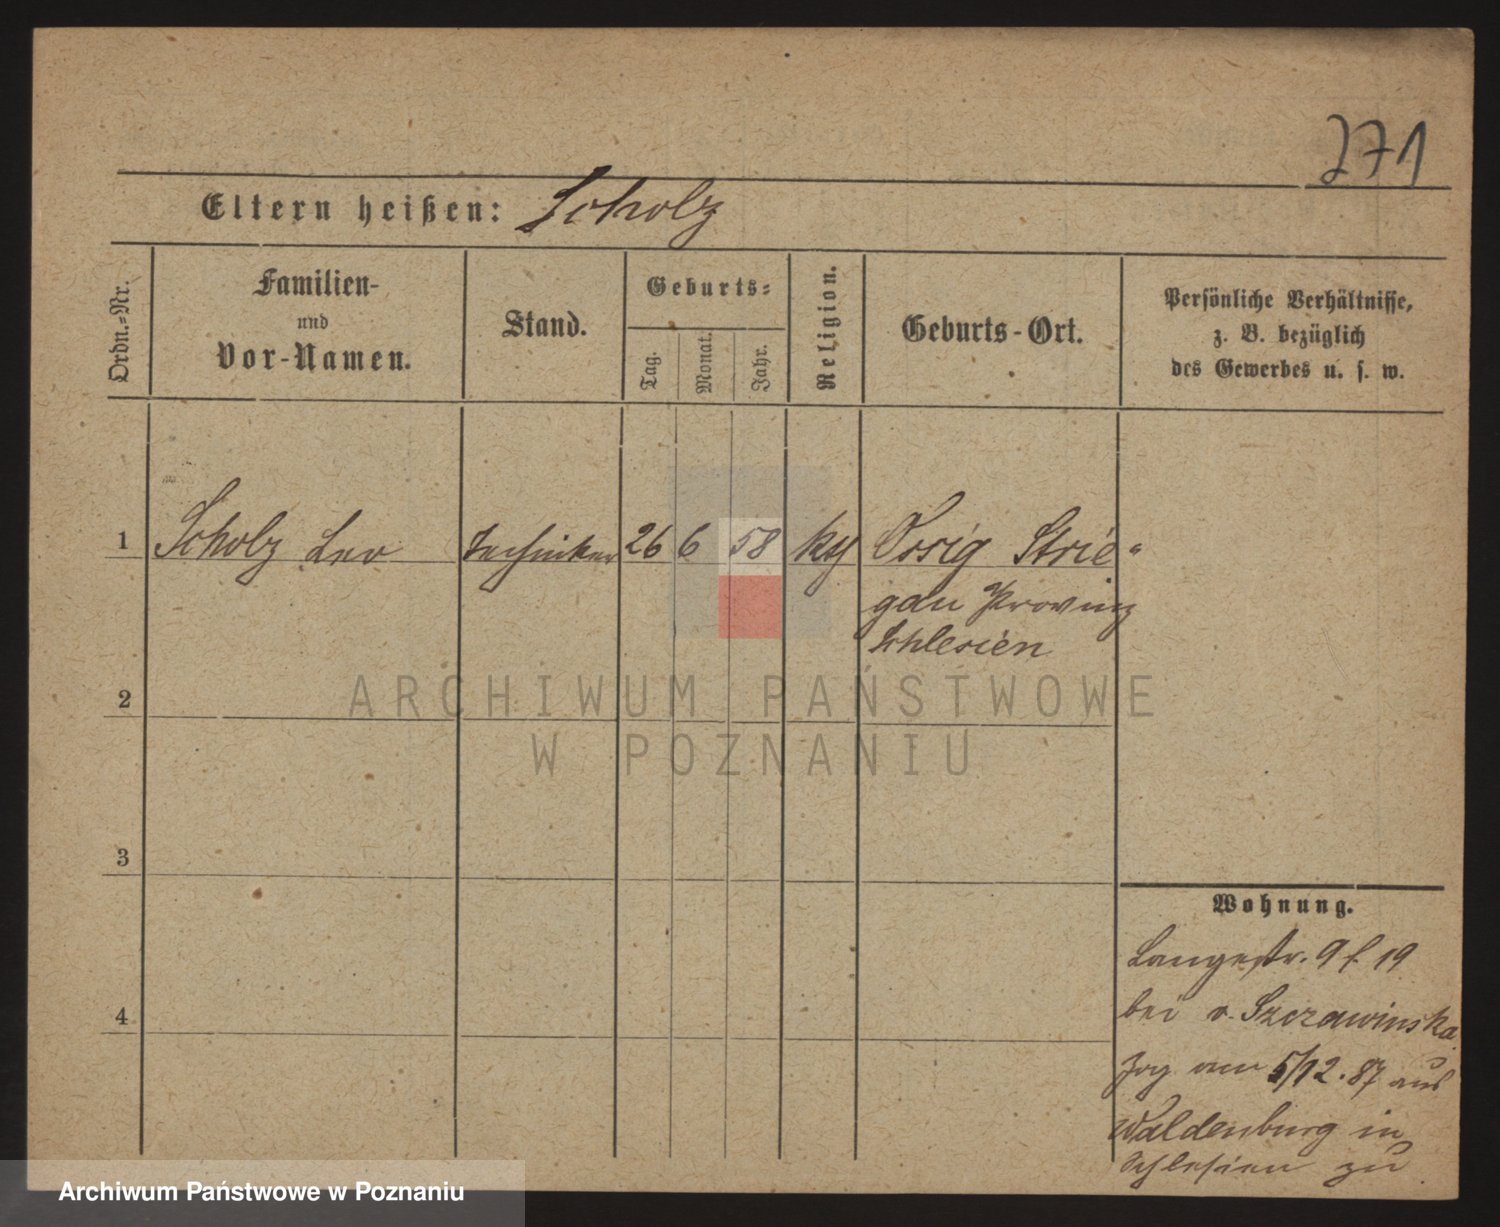 271
Eltern heißen: Scholz
Ordn.-Nr.
Familien-
und
Vor-Namen.
Stand.
Geburts-
Tag.
Monat.
Jahr.
Religion.
Geburts-Ort.
Persönliche Verhältnisse,
z. B. bezüglich
des Gewerbes u. s. w.
1 Scholz Leo Techniker 26 6 58 Ossig Strie-
gau Provinz
Schlesien
2
3
4
Wohnung.
Langestr. 9 19
bei v. Szczawinska
Zog am 5/12.87 aus
Waldenburg in
Schlesien zu
ARCHIWUM PAŃSTWOWE
W POZNANIU
Archiwum Państwowe w Poznaniu